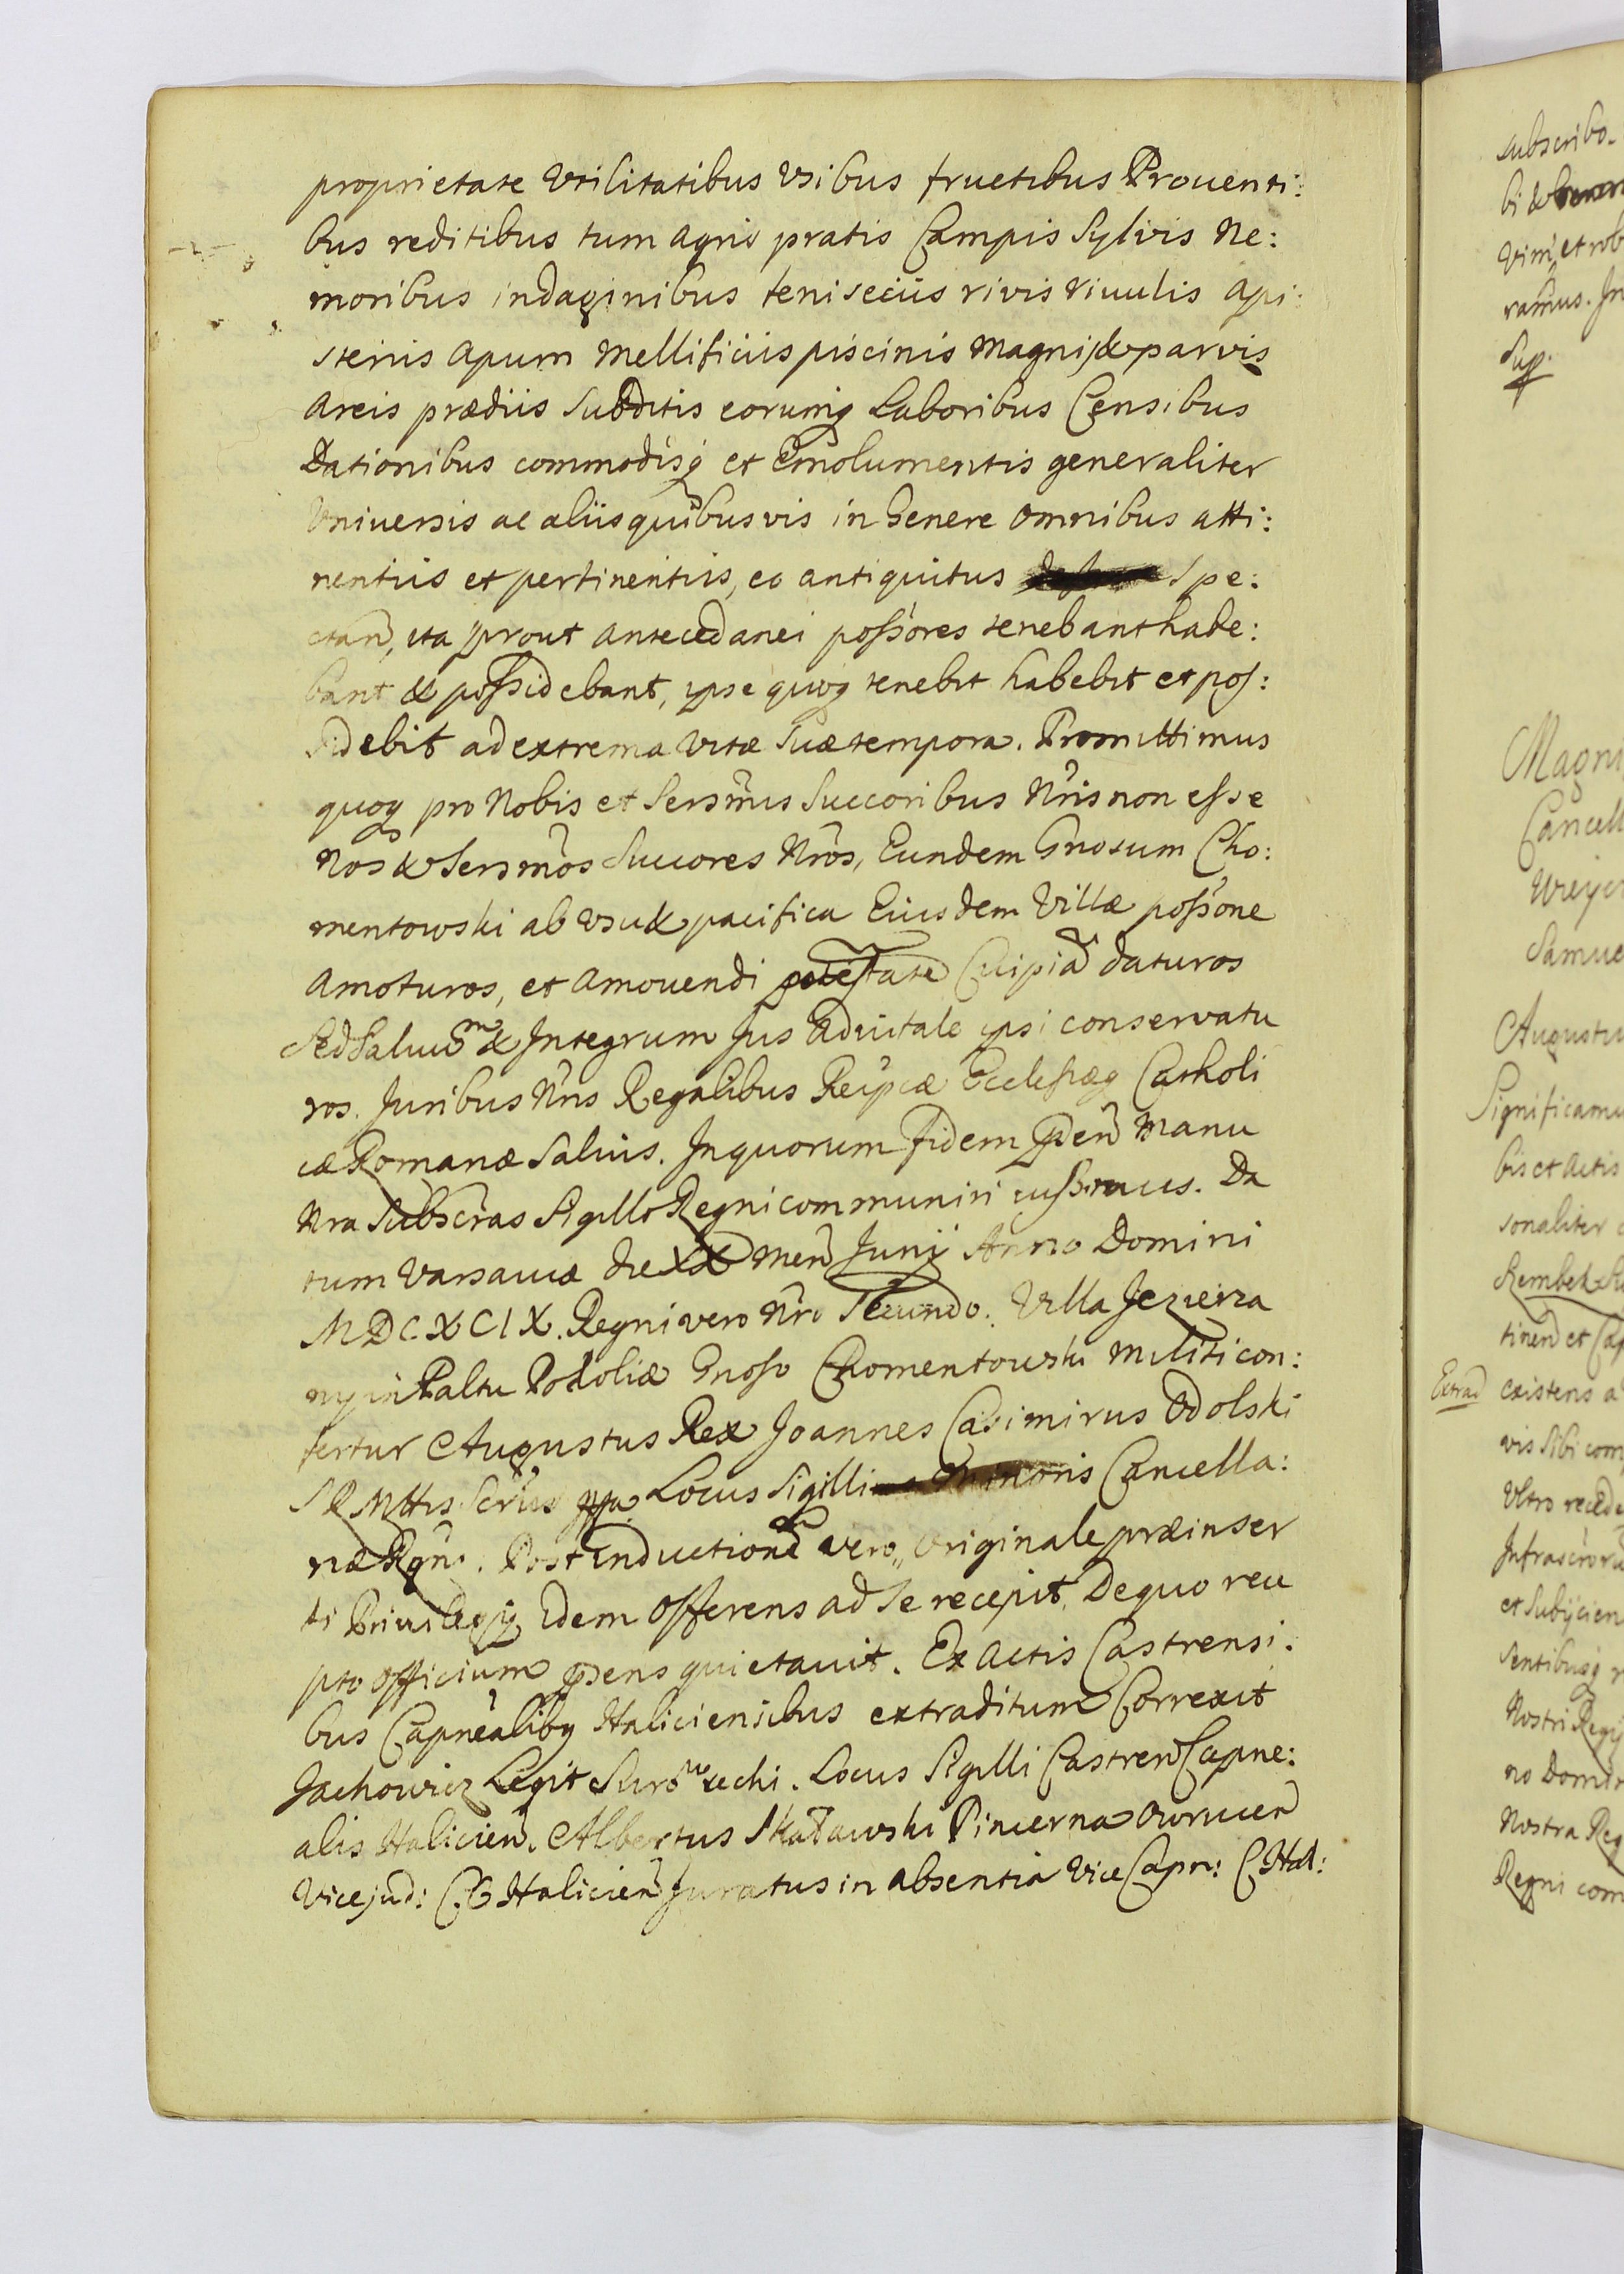 proprietate Vtilitatibus Vsibus fructibus Prouenti:
bus reditibus tum Agris pratis Campis Sylvis Ne:
moribus indaginibus feniseciis rivis Riuulis Api:
steriis Apum Mellificiis piscinis Magnis & parvis
Areis prædiis Subditis eorumq Laboribus Censibus
Dationibus commodisq et Emolumentis generaliter
Vniuersis ac aliis quibusvis in Genere omnibus atti:
nentiis et pertinentiis, eo antiquitus Spe:
ctan, ita prout antecedanei possores tenebant habe:
bant & possidebant, ipse quoq tenebit habebit et pos:
sidebit ad extrema Vitæ Suæ tempora. Promittimus
quoq pro Nobis et Sersmis Succoribus Nris non esse
Nos & Sersmos Succores Nros, Eundem Gnosum Cho:
mentowski ab Vsu & pacifica Eiusdem Villæ possone
Amoturos, et Amouendi potestate Cuipia daturos
Sed Saluum & Integrum Jus Aduitale ipsi conservatu
ros. Juribus Nris Regalibus Reipcæ Ecclesiæq Catholi
cæ Romanæ Saluis. In quorum fidem Psen Manu
Nra Subscras Sigillo Regni communiri iussimus. Da
tum Varsauiæ die XX Men Junij Anno Domini
MDCXCIX. Regni vero Nri Secundo. Villa Jezierza
ny in Paltu Podoliæ Gnoso Chomentowski Militi con:
fertur Augustus Rex Joannes Casimirus Odolski
S R Mttis Scrius ppa Locus Sigilli Minoris Cancella:
riæ Rgni. Post Inductione vero, Originale præinser
ti Priuilegij Idem Offerens ad Se recepit, De quo rece
pto Officium psens quietauit. Ex Actis Castrensi:
bus Capnealibq Haliciensibus extraditum Correxit
Jachowicz Legit . Locus Sigilli Castren Capne:
alis Halicien. Albertus Skarawski Pincerna Owrucen
Vicejud: C G Halicien Juratus in absentia Vice Capn: C Hal:
subscribo.
bi &
Vim, et rob
ramus. In
Supp.
Magni
Cancell
Samue
Augustu
Significamu
bis et Actis
sonaliter
Rembek
tinen et Cap
Extrad existens a
vis Sibi com
Vltro recede
Infrascroru
et Subijcien
Sentibusq
Nostri Regij
no Domin
Nostra Reg
Regni com